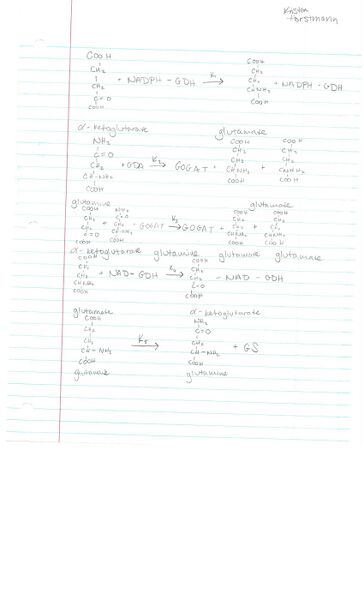 Kristen
Horstmann
COOH COOH
CH2 CH2
CH2 + NADPH - GDH K1 → CH2 + NADPH - GDH
C=O CHNH2
COOH COOH
α-ketoglutarate glutamate
NH2 COOH COOH
C=O CH2 CH2
CH2 + GDA K2 → GOGAT CH2 + CH2
CH-NH2 CHNH2 CHNH2
COOH COOH COOH
glutamine glutamate
COOH NH2 COOH COOH
CH2 C=O CH2 CH2
CH2 + CH2 GOGAT K3 → GOGAT + CH2 + CH2
C=O CH-NH2 CHNH2 CHNH2
COOH COOH COOH COOH
α-ketoglutarate glutamine glutamate glutamate
COOH COOH
CH2 CH2
CH2 + NAD - GDH → CH2 - NAD - GDH
CHNH2 C=O
COOH COOH
glutamate α-ketoglutarate
COOH NH2
CH2 C=O
CH2 K5 → CH2 + GS
CH-NH2 CH-NH2
COOH COOH
glutamine